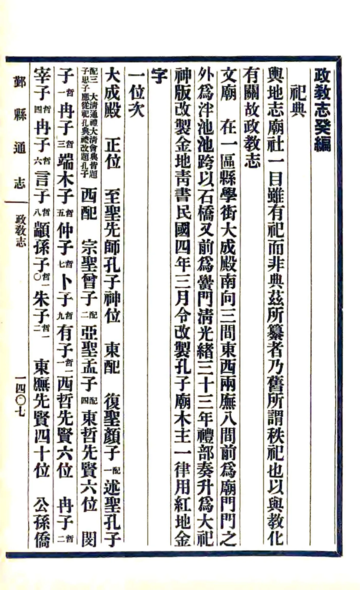 政教志癸編
祀典
輿地志廟社一目雖有祀而非典茲所纂者乃舊所謂秩祀也以與教化
有關故政教志
文廟　在一區縣學街大成殿南向三間東西兩廡八間前為廟門門之
外為泮池池跨以石橋又前為黌門清光緒三十三年禮部奏升為大祀
神版改製金地青書民國四年三月令改製孔子廟木主一律用紅地金
字
一位次
大成殿　正位　至聖先師孔子神位　東配　復聖顏子配一述聖孔子
配三　大清通禮大清會典皆題子思子應從祀孔典禮改題孔子　西配　宗聖曾子配二亞聖孟子配四東哲先賢六位　閔
子哲一冉子哲三端木子哲五仲子哲七卜子哲九有子哲一一西哲先賢六位　冉子哲二
宰子哲四冉子哲六言子哲八顓孫子哲一〇朱子哲一二　東廡先賢四十位　公孫僑
鄞縣通志　政教志　一四〇七